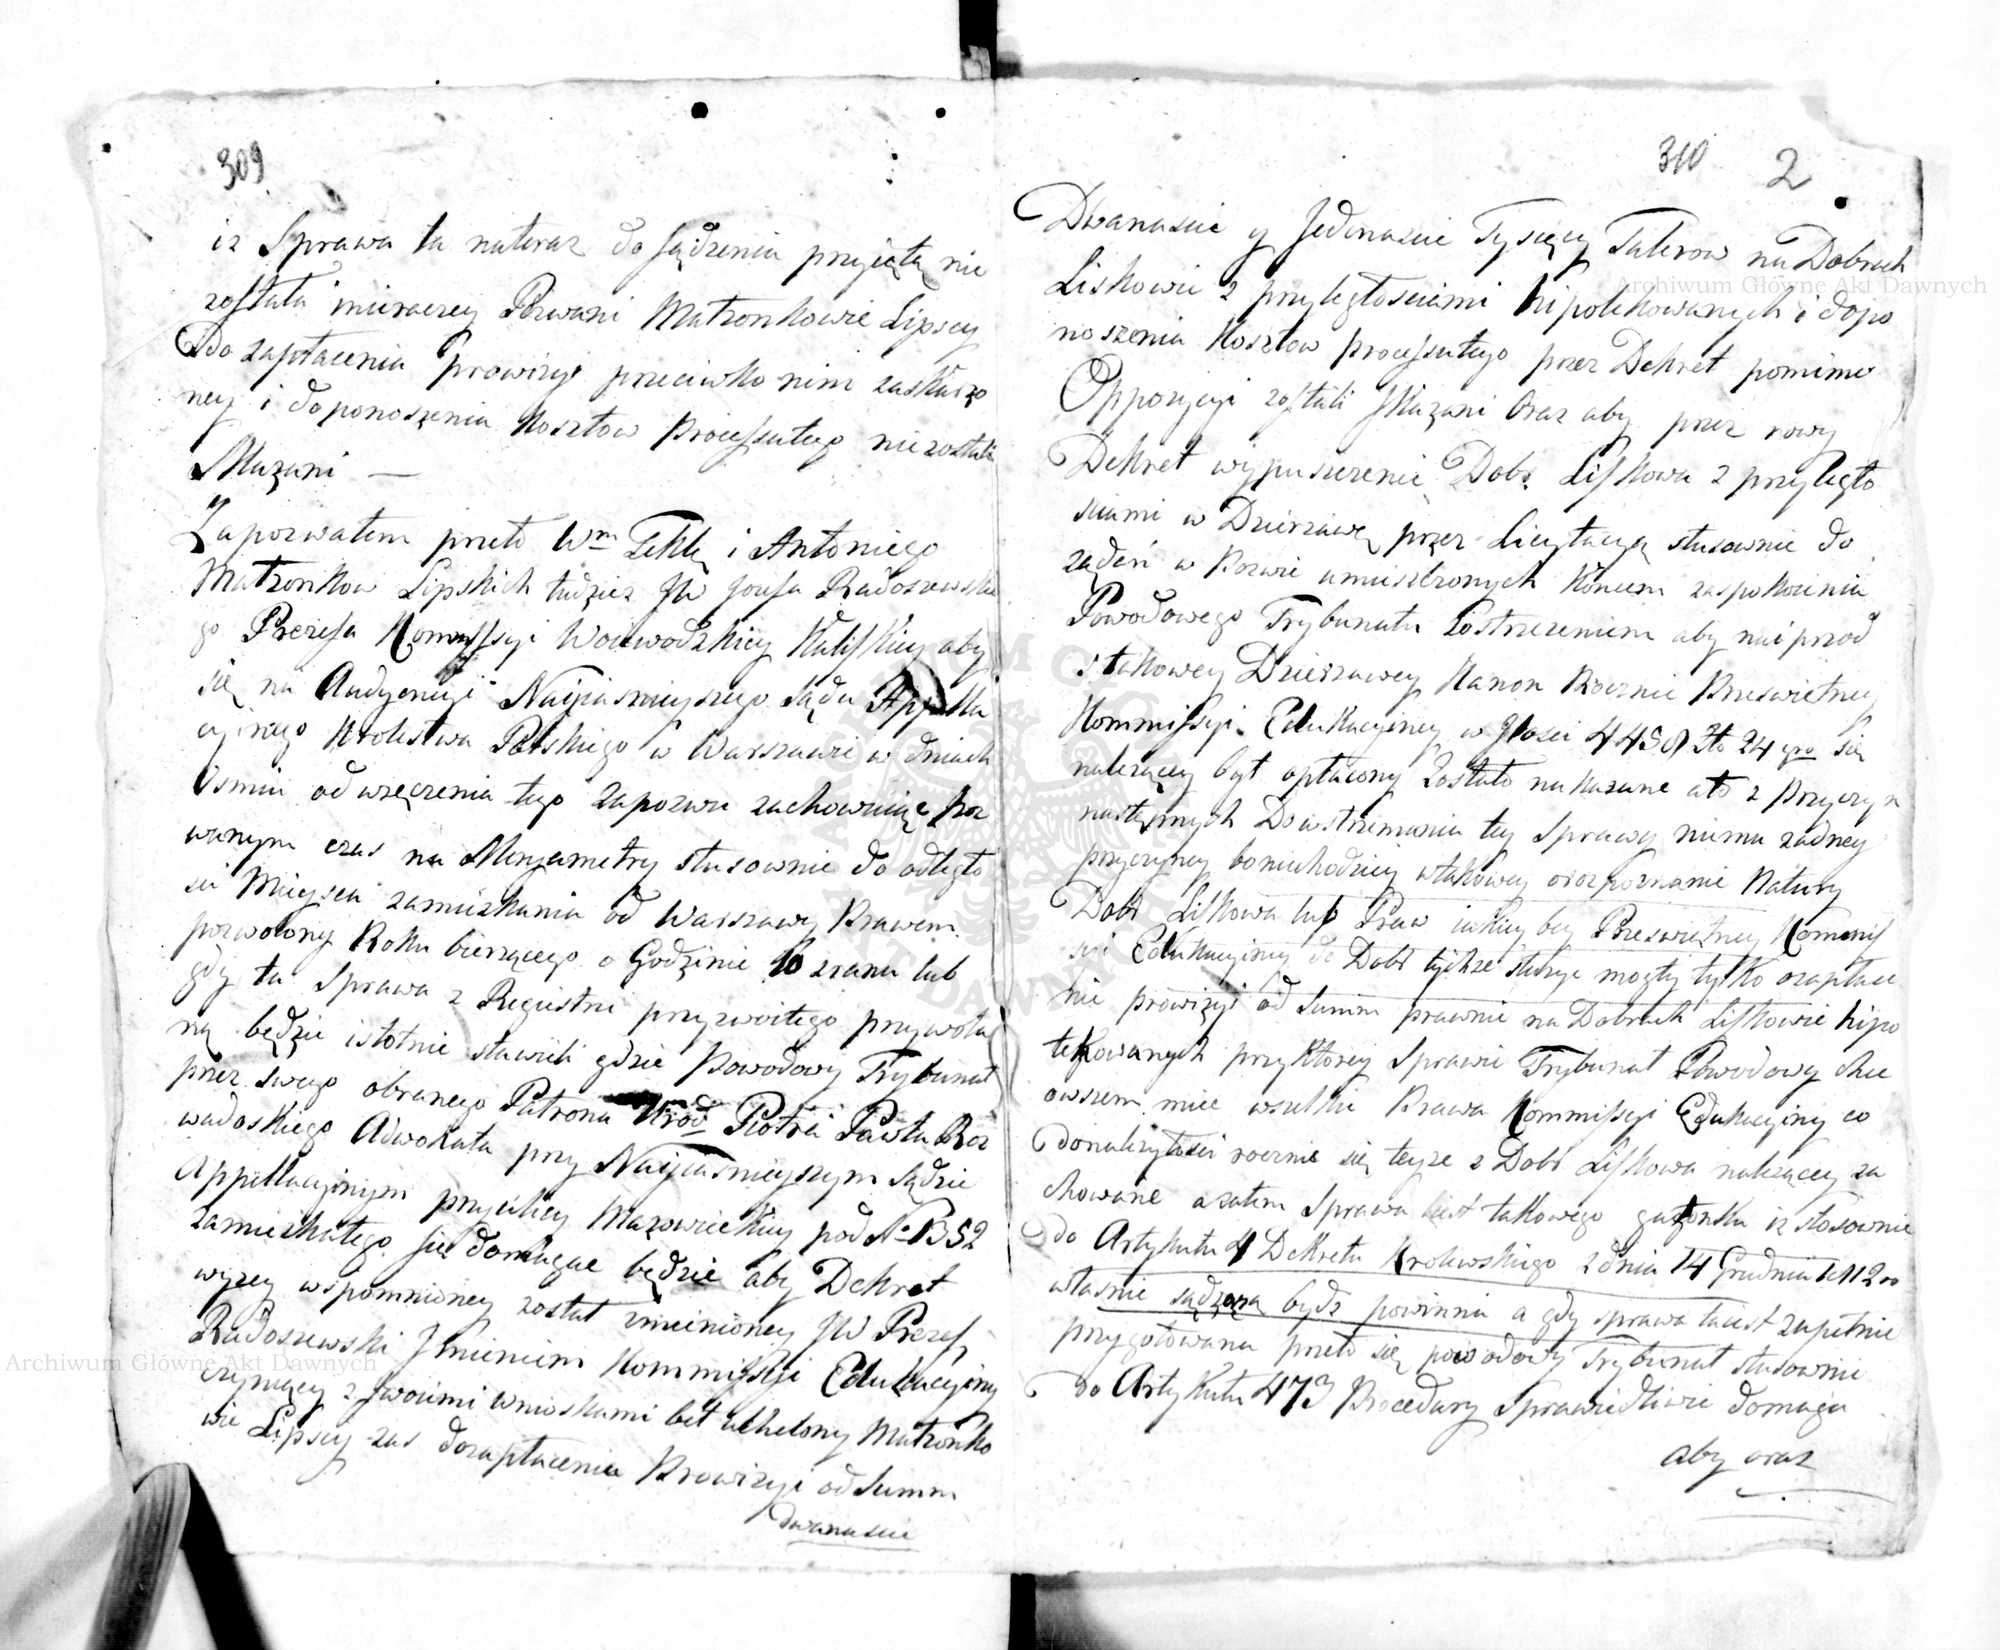 309
iz Sprawa ta nateraz do sądzenia przyiętą nie
została inaczey Pozwani Małżonkowie Lipscy
do zapłacenia Prowizyi przeciwko nim zaskarżo
ney i do ponoszęnia Kosztow Processutego niezostali
Skazani —
Zapozwałem przeto Wm Teklę i Antoniego
Małżonkow Lipskich tudzież JW Jozefa Radoszewskie
go Prezesa Kommissyi Woiewodzkiey Kaliskiey aby
się na Audyencyi Nayiasnieyszego Sądu Appella
cyinego Krolestwa Polskiego w Warszawie w dniach
Osmiu od wręczenia tego zapozwu zachowuiąc Poz
wanym czas na Myryametry stosownie do odległo
sci Mieysca zamieszkania od Warszawy Prawem
pozwolony Roku bieżącego o Godzinie 10 zrana lub
gdy ta Sprawa z Regestru przyzwoitego przywoła
ną będzie istotnie stawili gdzie Powodowy Trybunał
przez swego obranego Patrona Urod. Piotra Pawła Roz
wadoskiego Adwokata przy Nayiasnieyszym Sądzie
Appellacyinym przyulicy Mazowieckiey pod No 1352
zamieszkałego się domagac będzie aby Dekret
wyzey wspomnioney został zmieniony JW Prezes
Radoszewski Imieniem Kommissyi Edukacyiney
czyniący z swoiemi wnioskami był uchylony Małżonko
wie Lipscy zas dozapłacenia Prowizyi od Summ
dwanascie
310 2
Dwanascie y Jedenascie Tysięcy Talerow na Dobrach
Liskowie z przyległosciami hipotekowanych i dopo
noszenia Kosztow processutego przez Dekret pomimo
Oppozycyi zostali skazani Oraz aby przez nowy
Dekret wypuszczenie Dobr Liskowa z przyległo
sciami w Dzierzawę przez Licytacyą stosownie do
żądań w Pozwie umieszczonych Koncem zaspokoienia
Powodowego Trybunału Zostrzezeniem aby nai przod
stakowey Dzierzawy Kanon Rocznie Przeswietney
Kommissyi Edukacyiney w Ilosci 4450 Zło 24 gro się
należący był opłacony Zostało nakazane ato z Przyczyn
następnych Dowstrzymania tey Sprawy niema żadney
przyczyny bo niechodziey wtakowey orozpoznanie Natury
Dobr Liskowa lub Praw iakiey bey Przeswietney Kommis
syi Edukacyiney do Dobr tychże służyc mogły tylko ozapłace
nie prowizyi od Summ prawnie na Dobrach Liskowie hipo
tekowanych przyktorey Sprawie Trybunał Powodowy chce
owszem miec wszelkie Prawa Kommissyi Edukacyiney co
donależytosci rocznie się teyże z Dobr Liskowa należącey za
chowane azatem Sprawa iest takowego gatonku iż stosownie
do Artykułu 4 Dekretu Krolewskiego z dnia 14 Grudnia 1812 ro
własnie sądzona bydz powinna a gdy sprawa taiest zupełnie
przygotowana przeto się powodowy Trybunał stosownie
do Artykułu 473 Procedury Sprawiedliwie domaga
aby oraz
Archiwum Główne Akt Dawnych
Archiwum Główne Akt Dawnych